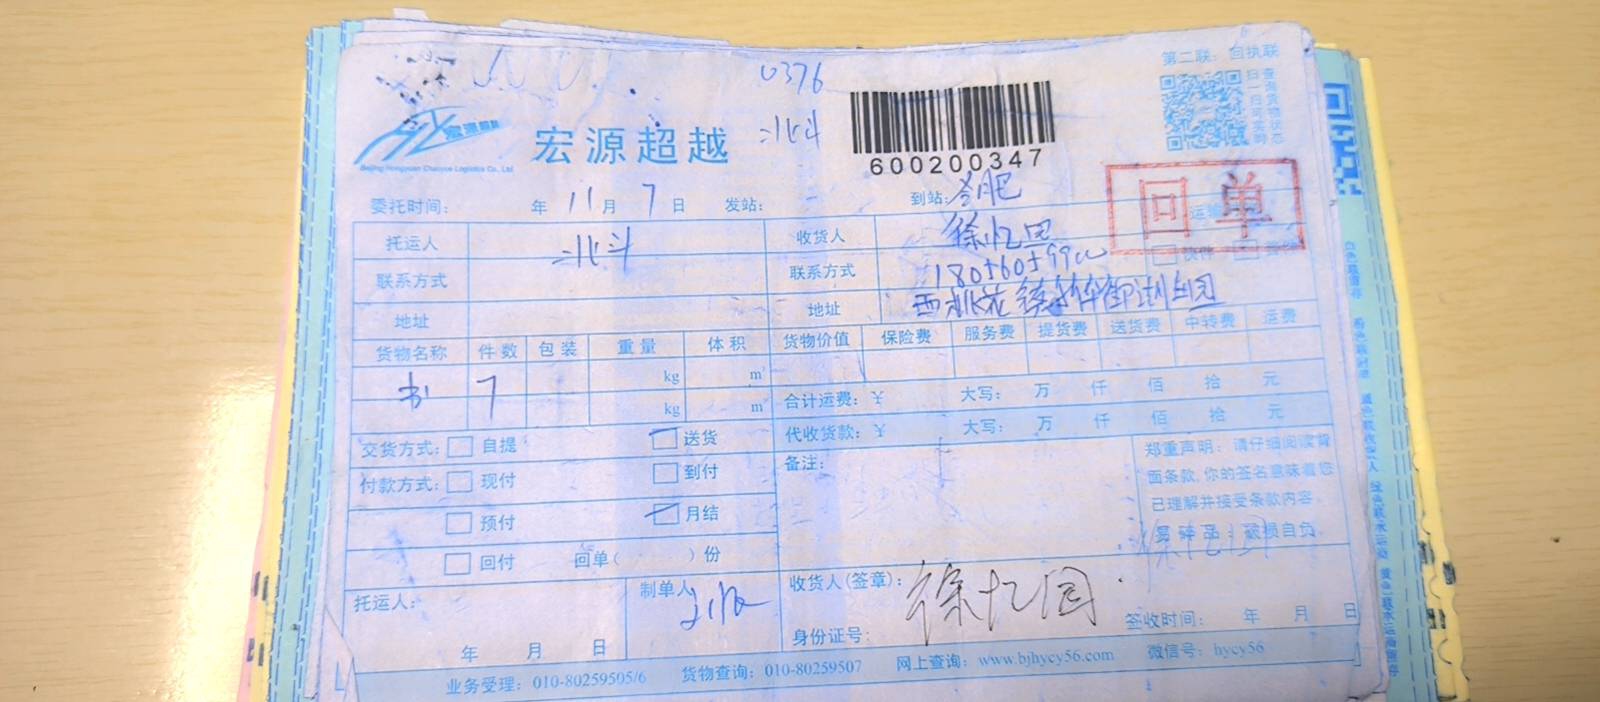 第二联：回执联
0376
扫一扫
北斗
宏源超越
Beijing Hongyuan Chaoyue Logistics Co., Ltd.
600200347
回单
委托时间： 年 11 月 7 日 发站： 到站：合肥
托运人 北斗 收货人 徐忆园
联系方式 联系方式
地址 地址 西桃花镇
货物名称 件数 包装 重量 体积 货物价值 保险费 服务费 提货费 送货费 中转费 运费
书 7 kg m³
kg m³ 合计运费：¥ 大写： 万 仟 佰 拾 元
代收货款：¥ 大写： 万 仟 佰 拾 元
交货方式： 自提 送货 备注：
付款方式： 现付 到付
预付 月结
回付 回单( )份
郑重声明：请仔细阅读背
面条款，你的签名意味着您
已理解并接受条款内容。
易碎品：破损自负
托运人： 制单人 收货人(签章)：徐忆园
年 月 日 身份证号： 签收时间： 年 月 日
业务受理：010-80259505/6 货物查询：010-80259507 网上查询：www.bjhycy56.com 微信号：hycy56